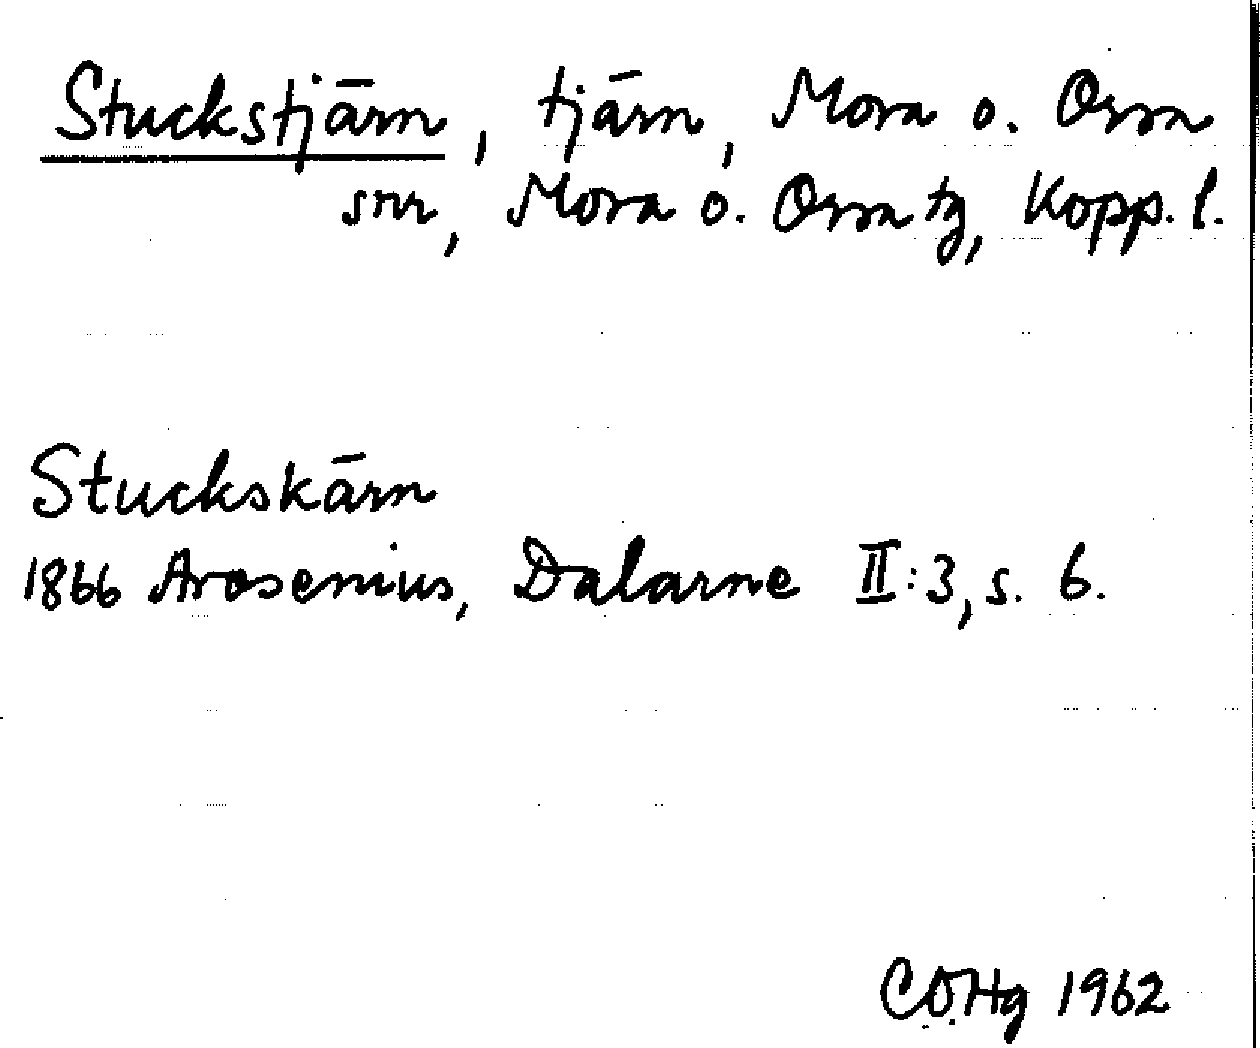 Stuckstjärn, tjärn, Mora o. Orsa
snr, Mora o. Orsa tg, Kopp. l.
Stuckskärn
1866 Arosenius, Dalarne II:3, s. 6.
C.O.Hg 1962